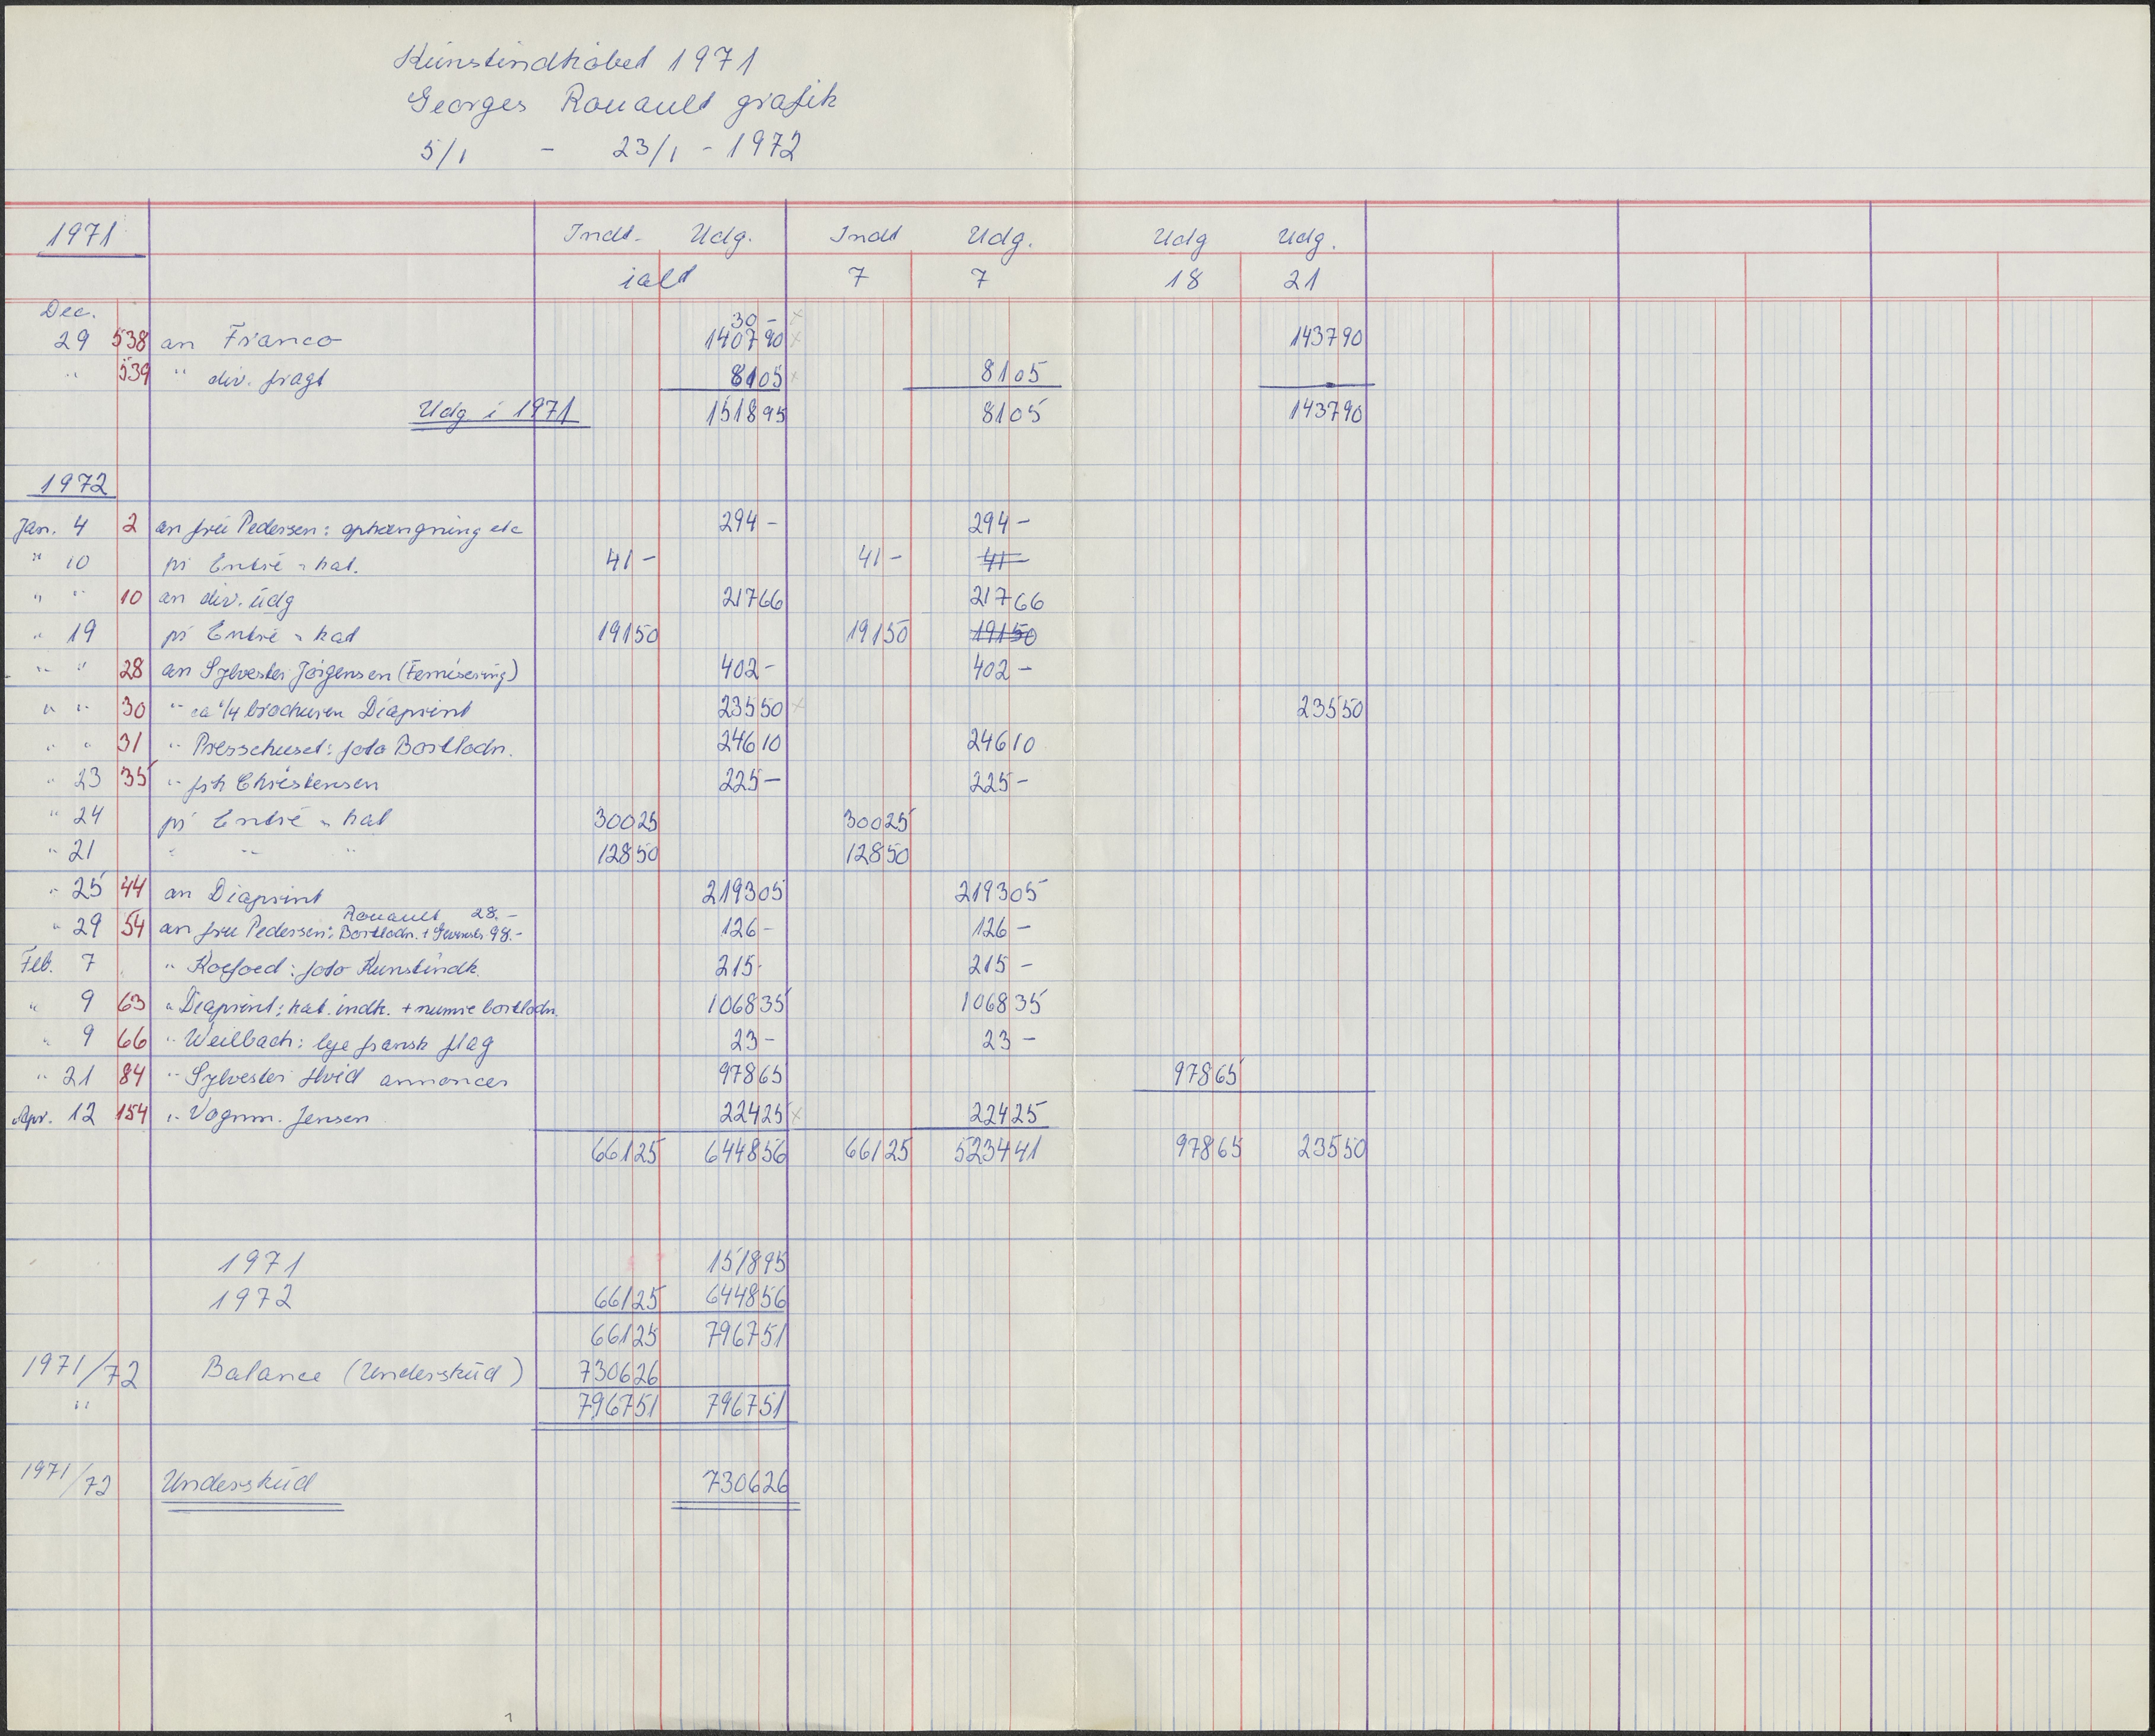 Kunstindkøbet 1971
Georges Rouault grafik
5/1 - 23/1 - 1972
1971 Indt. Udg. Indt Udg. Udg Udg.
ialt 7 7 18 21
Dec. 30 -
29 538 an Franco 140790 143790
" 539 " div. fragt 8105 8105
Udg i 1971 151895 8105 143790
1972
Jan. 4 2 an fru Pedersen: ophængning etc 294 - 294 -
" 10 pr Entré + kat. 41 - 41 - 41 -
" " 10 an div. udg 21766 21766
" 19 pr Entré + kat 19150 19150 19150
" " 28 an Sylvester Jørgensen (Fernisering) 402 - 402 -
" " 30 " ca 1/4 brochuren Diaprint 23550 23550
" " 31 " Pressehuset: foto Bortlodn. 24610 24610
" 23 35 " frk Christensen 225 - 225 -
" 24 pr Entré + kat 30025 30025
" 21 " " " 12850 12850
" 25 44 an Diaprint 219305 219305
Rouault 28.-
" 29 54 an fru Pedersen: Bortlodn. + 98.- 126 - 126 -
Feb. 7 " Koefoed: foto Kunstindk. 215 - 215 -
" 9 63 " Diaprint: kat. indk. + numre bortlodn. 106835 106835
" 9 66 " Weilbach: leje fransk flag 23 - 23 -
" 21 84 " Sylvester Hvid annoncer 97865 97865
Apr. 12 154 " Vognm. Jensen 22425 22425
66125 644856 66125 523441 97865 23550
1971 151895
1972 66125 644856
66125 796751
1971/72 Balance (Underskud) 730626
" 796751 796751
1971/72 Underskud 730626